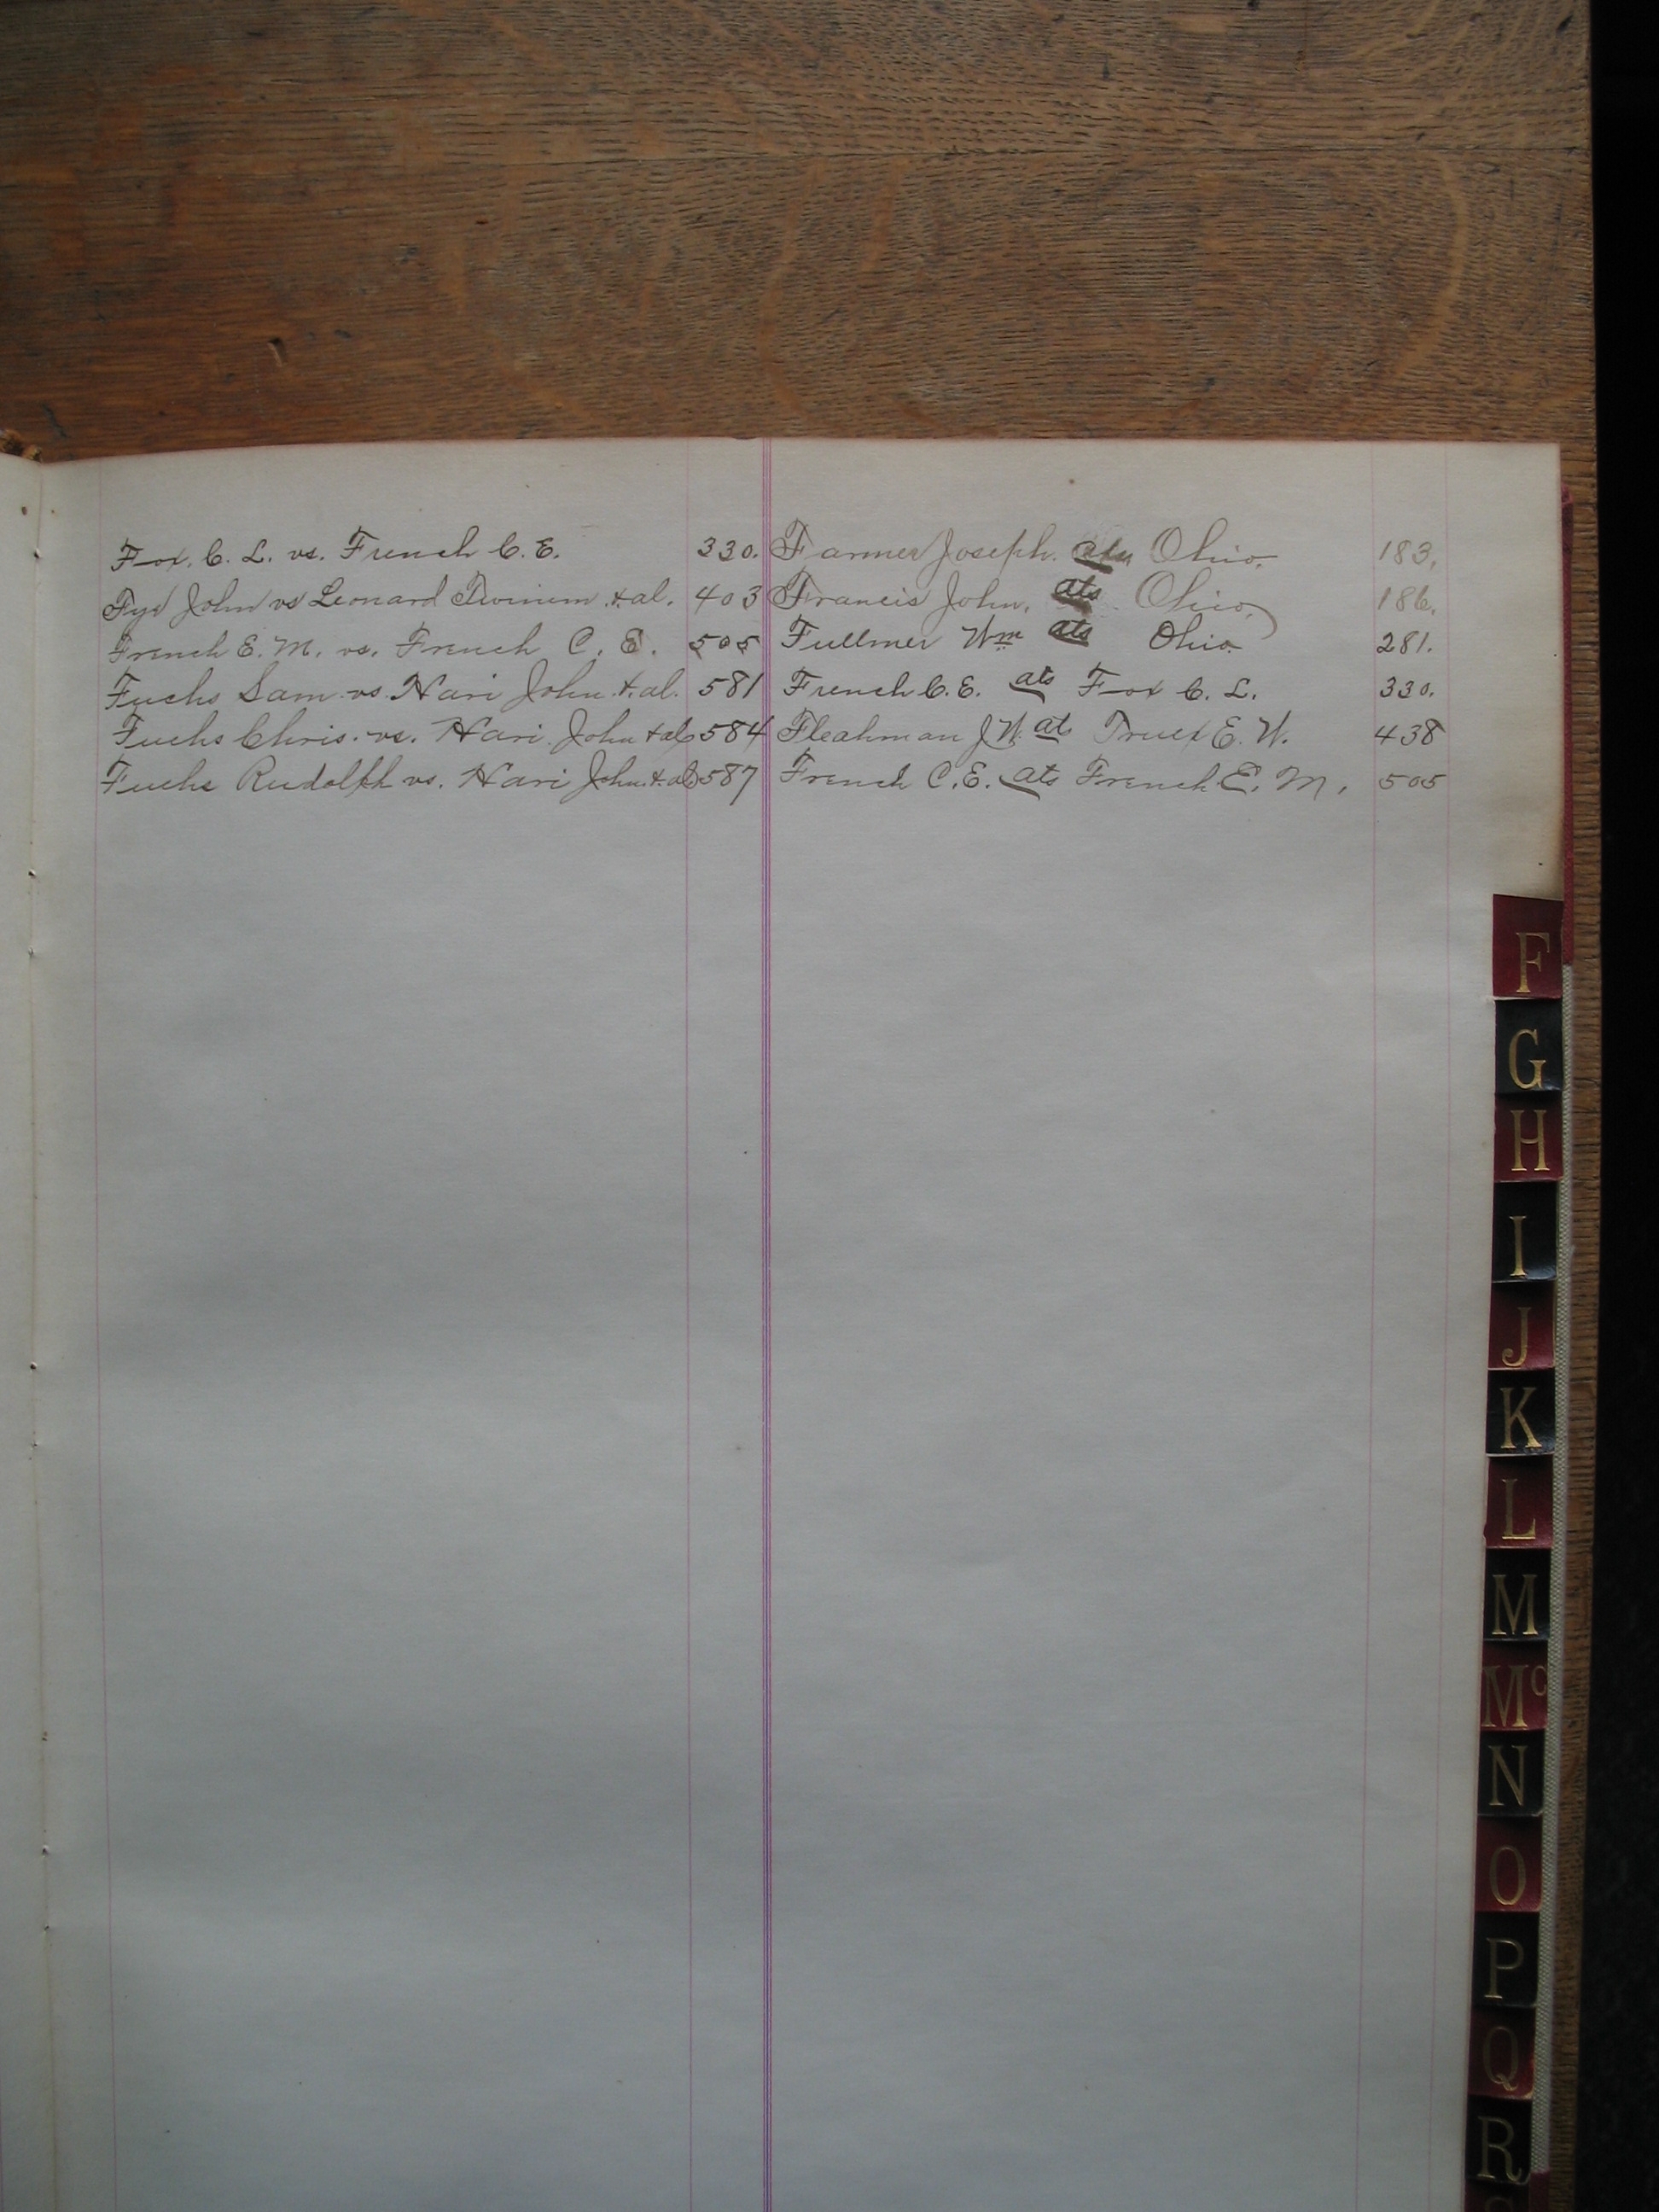 Fox. C. L. vs. French C. E. 330.
Fye John vs Leonard Twinem & al. 403
French E. M. vs. French C. E. 505
Fuchs Sam vs. Hari John & al. 581
Fuchs Chris. vs. Hari John & al 584
Fuchs Rudolph vs. Hari John & al 587
Farmer Joseph. ats Ohio. 183.
Francis John. ats Ohio 186.
Fullmer Wm ats Ohio 281.
French C. E. ats Fox C. L. 330.
Fleahman J W. ats Truex E. W. 438
French C. E. ats French E. M. 505
F
G
H
I
J
K
L
M
Mc
N
O
P
Q
R